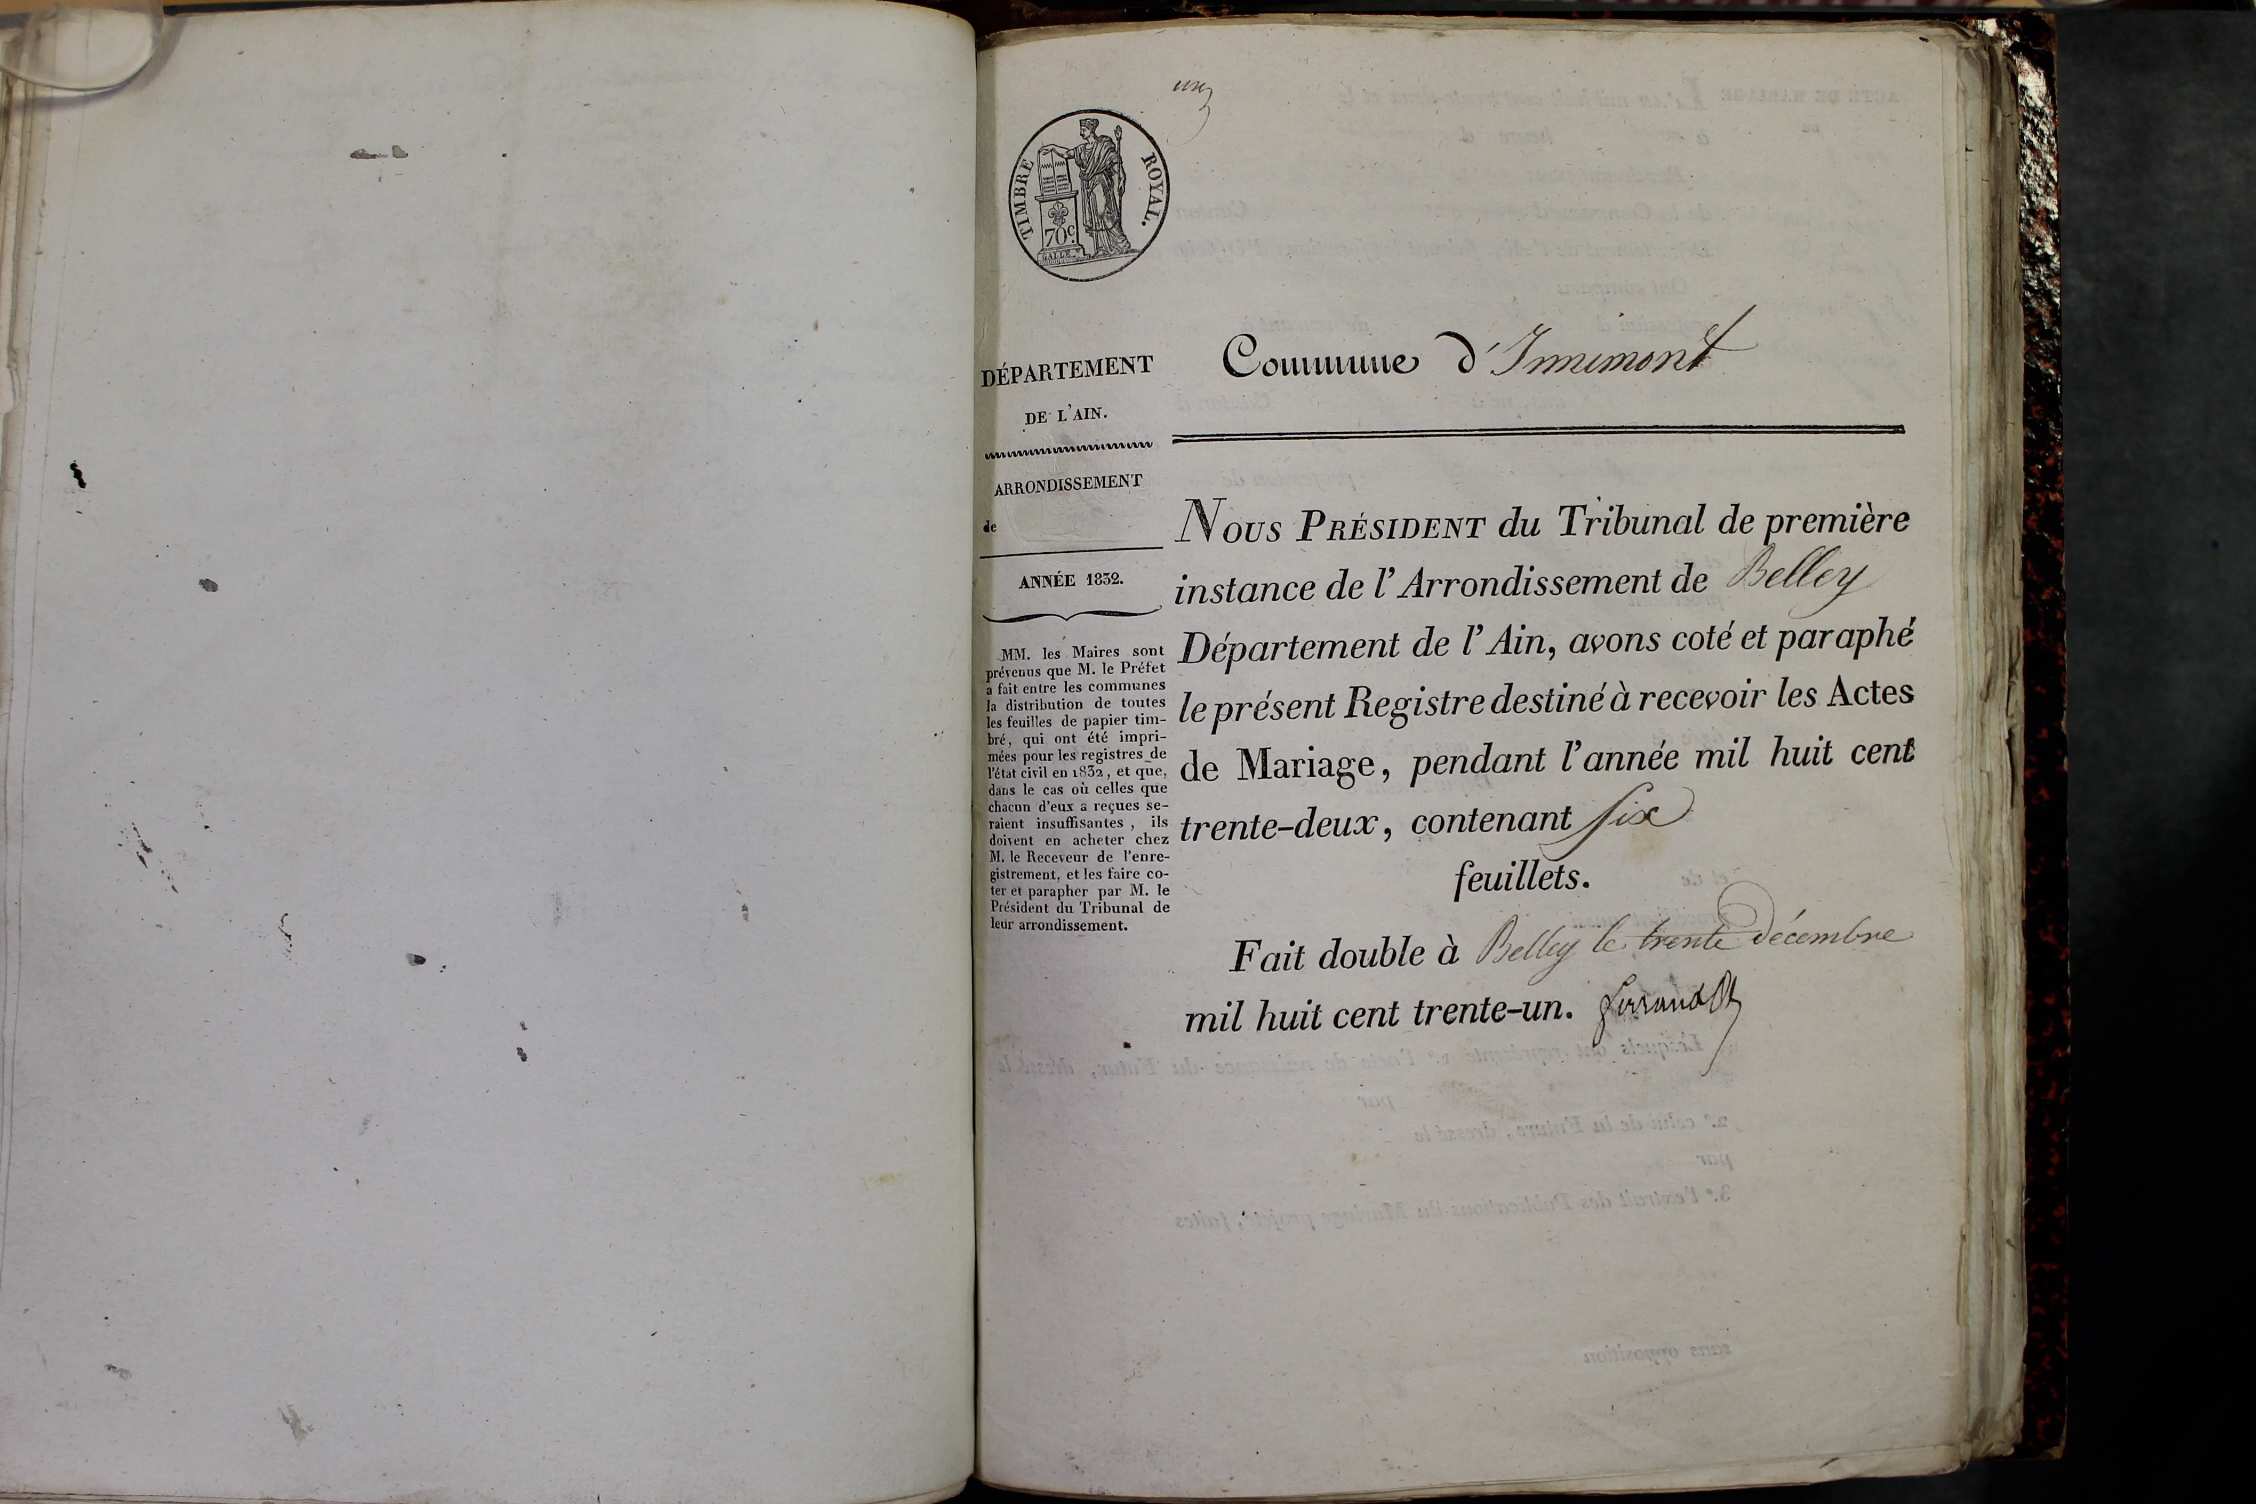 un
TIMBRE ROYAL.
70c.
GALLE.
DÉPARTEMENT
DE L'AIN.
ARRONDISSEMENT
de
ANNÉE 1832.
MM. les Maires sont
prévenus que M. le Préfet
a fait entre les communes
la distribution de toutes
les feuilles de papier tim-
bré, qui ont été impri-
mées pour les registres de
l'état civil en 1832, et que,
dans le cas où celles que
chacun d'eux a reçues se-
raient insuffisantes, ils
doivent en acheter chez
M. le Receveur de l'enre-
gistrement, et les faire co-
ter et parapher par M. le
Président du Tribunal de
leur arrondissement.
Commune d'Innimont
NOUS PRÉSIDENT du Tribunal de première
instance de l'Arrondissement de Belley
Département de l'Ain, avons coté et paraphé
le présent Registre destiné à recevoir les Actes
de Mariage, pendant l'année mil huit cent
trente-deux, contenant six
feuillets.
Fait double à Belley le trente décembre
mil huit cent trente-un.